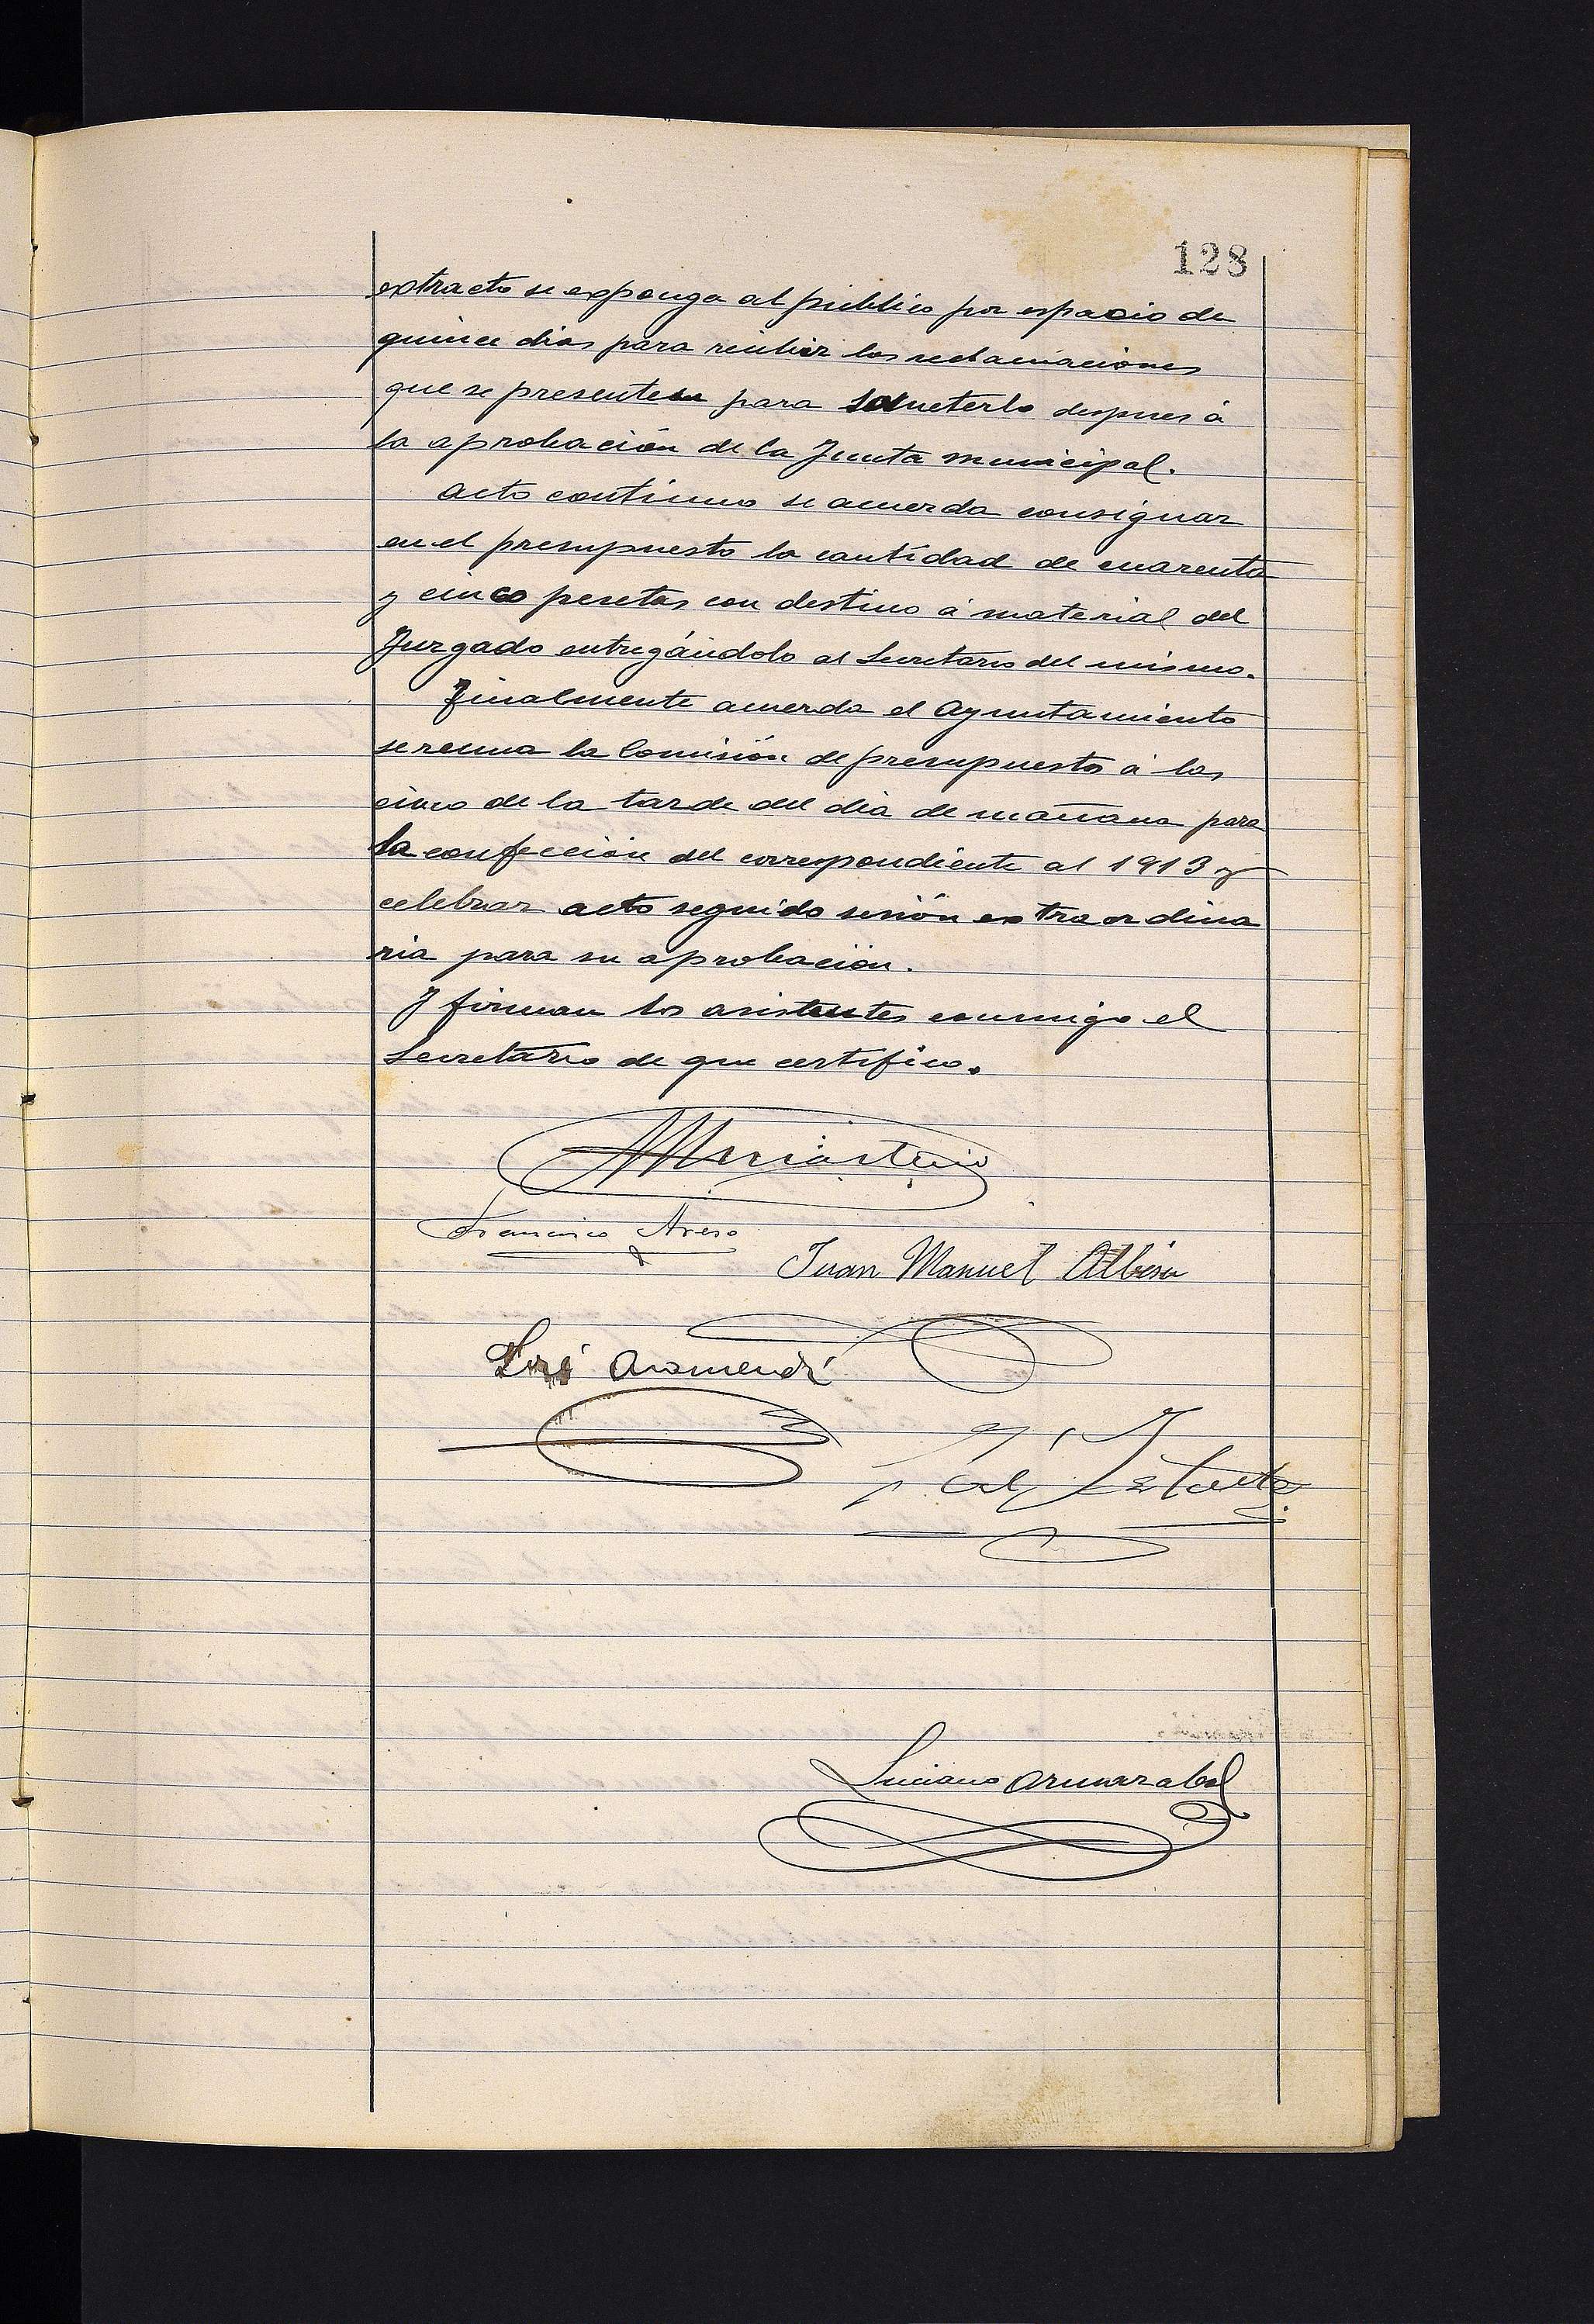 128
extracto se exponga al publico por espacio de
quince dias para recibir las reclamaciones
que se presenten para someterlo despues á
la aprobación de la Junta municipal.
Acto continuo se acuerda consignar
en el presupuesto la cantidad de cuarenta
y cinco pesetas con destino á material del
Juzgado entregándolo al Secretario del mismo.
Finalmente acuerda el Ayuntamiento
se reuna la Comisión de presupuestos á las
cinco de la tarde del dia de mañana para
la confección del correspondiente al 1913 y
celebrar acto seguido sesión extraordina
ria para su aprobación.
Y firman los asistentes conmigo el
Secretario de que certifico.
Francisco Areso
Juan Manuel Albisu
José Aramendi
Luciano Arunarabal